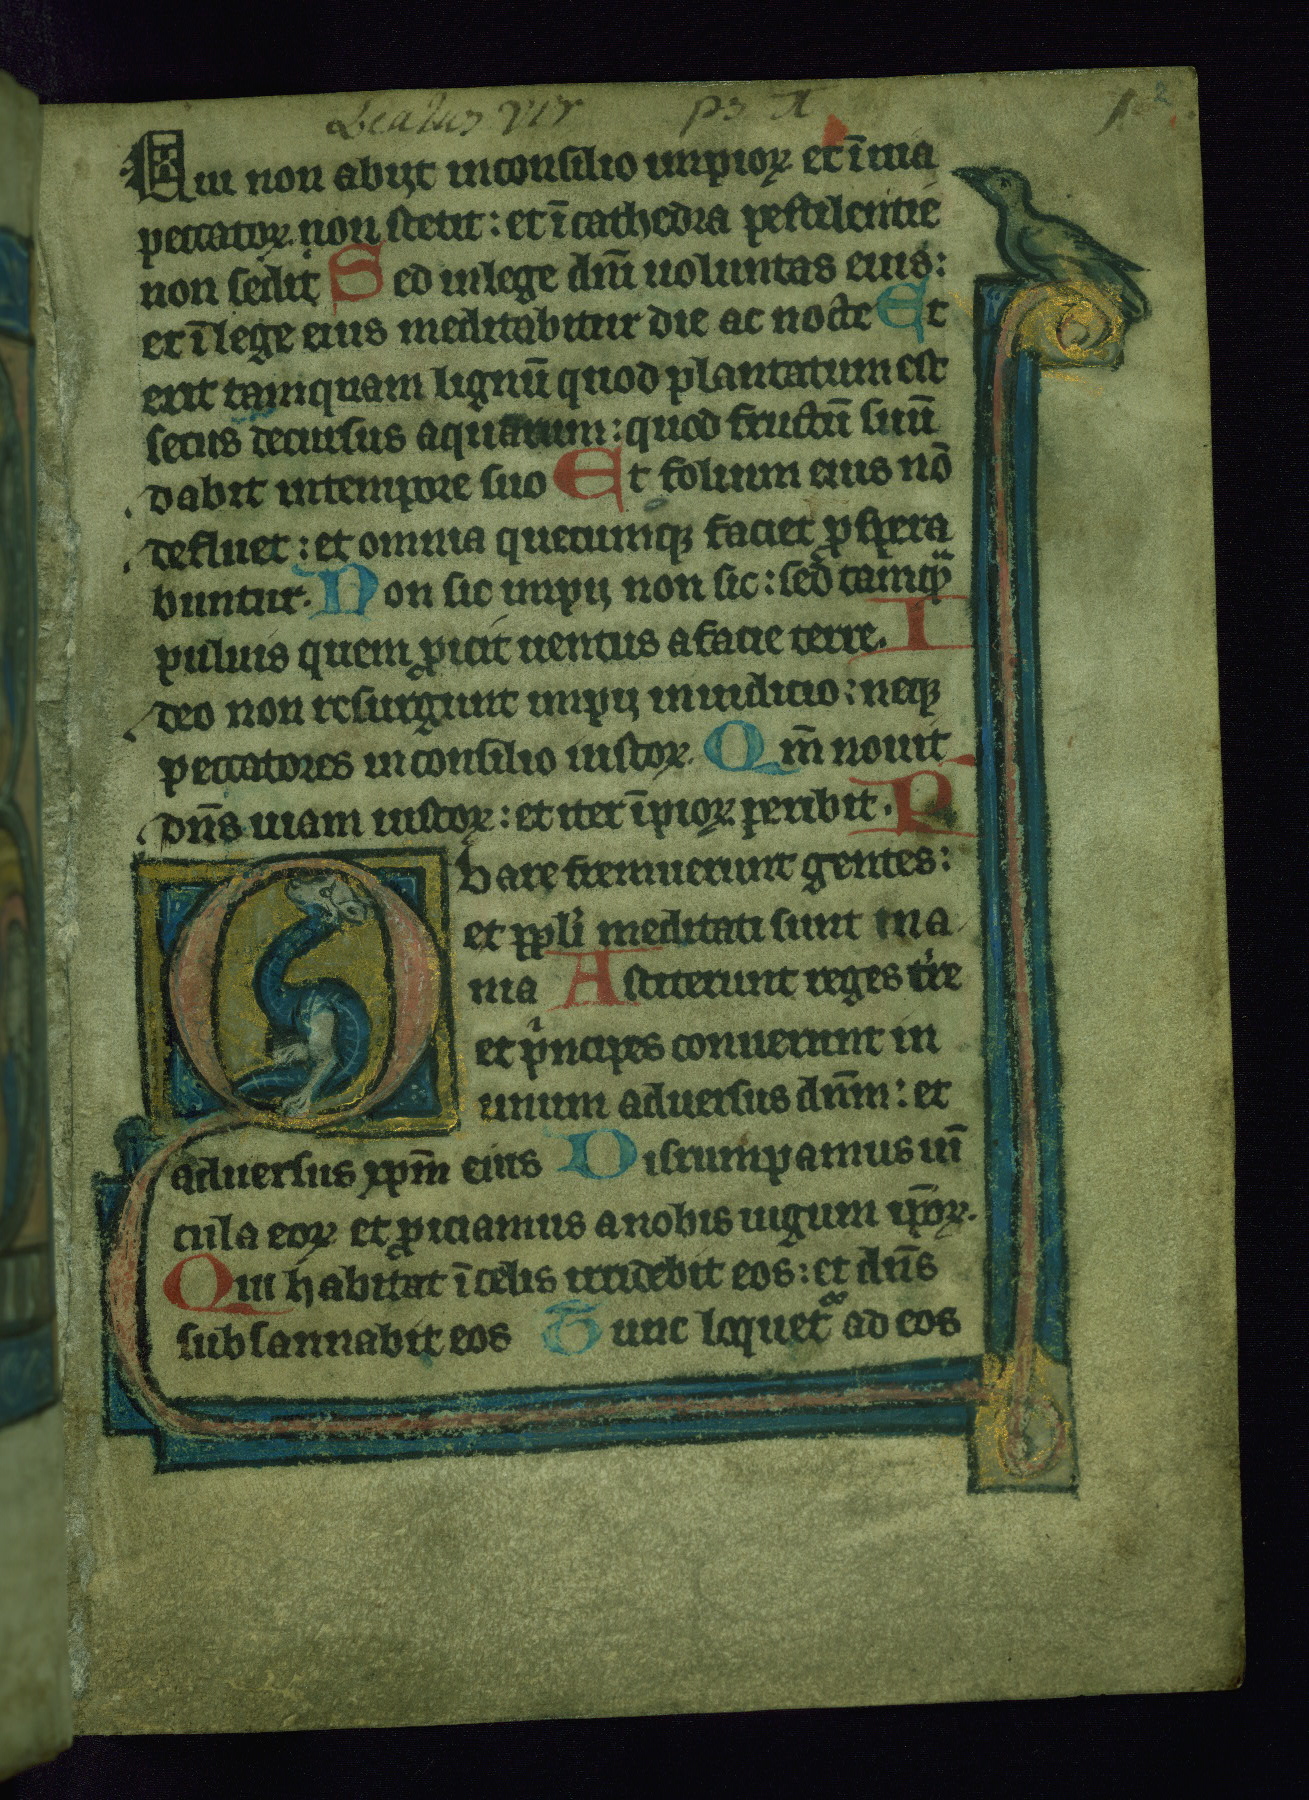 Beatus vir ps 1 1 2
Qui non abijt inconsilio impioꝝ et ī uia
peccatoꝝ non stetit : et ī cathedra pestilentie
non sedit Sed inlege dn̄i uoluntas eius :
et ī lege eius meditabitur die ac nocte Et
erit tamquam lignū quod plantatum est
secus decursus aquarum : quod fructū suū
dabit intempore suo Et folium eius nō
defluet : et omnia quecumqꝫ faciet ꝓspera
buntur. Non sic impij non sic : sed tamqͣ
puluis quem ꝓicit uentus a facie terre. I
deo non resurgunt impij iniudicio : neqꝫ
peccatores in consilio iustoꝝ. Qm̄ nouit
dn̄s uiam iustoꝝ : et iter īpioꝝ peribit. P
Q hare fremuerunt gentes :
et ppl'i meditati sunt ina
nia Astiterunt reges t're
et pͥncipes conuenerunt in
unum aduersus dn̄m : et
aduersus xp̄m eius Disrumpamus uī
cula eoꝝ et ꝓiciamus anobis uigum ip̄oꝝ.
Qui habitat ī celis irridebit eos : et dn̄s
subsannabit eos Tunc loquet᷑ ad eos